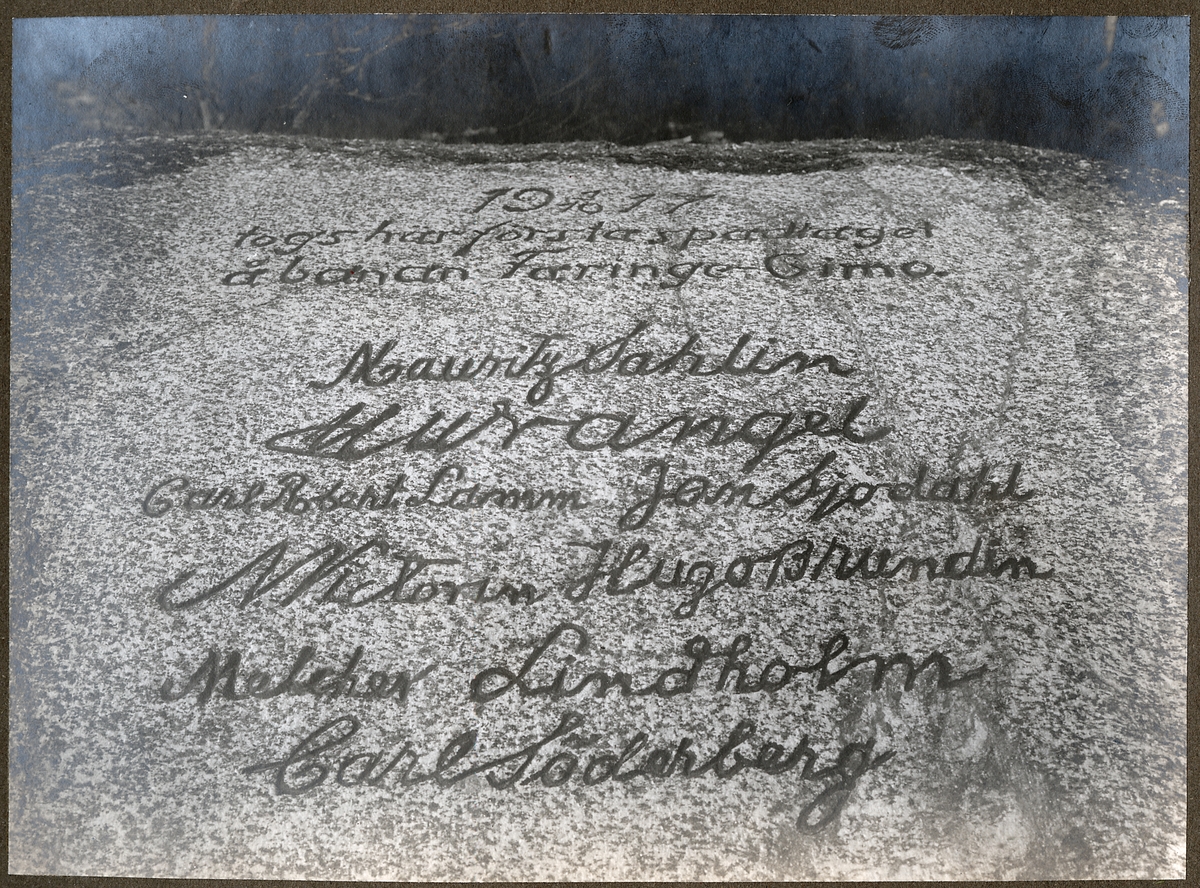 1917
togs här första spadtaget
å banan Faringe-Gimo.
Mauritz Sahlin
Wrangel
Carl Robert Lamm Jan Sjödahl
Victorin Hugo Brundin
Melcher Lindholm
Carl Söderberg